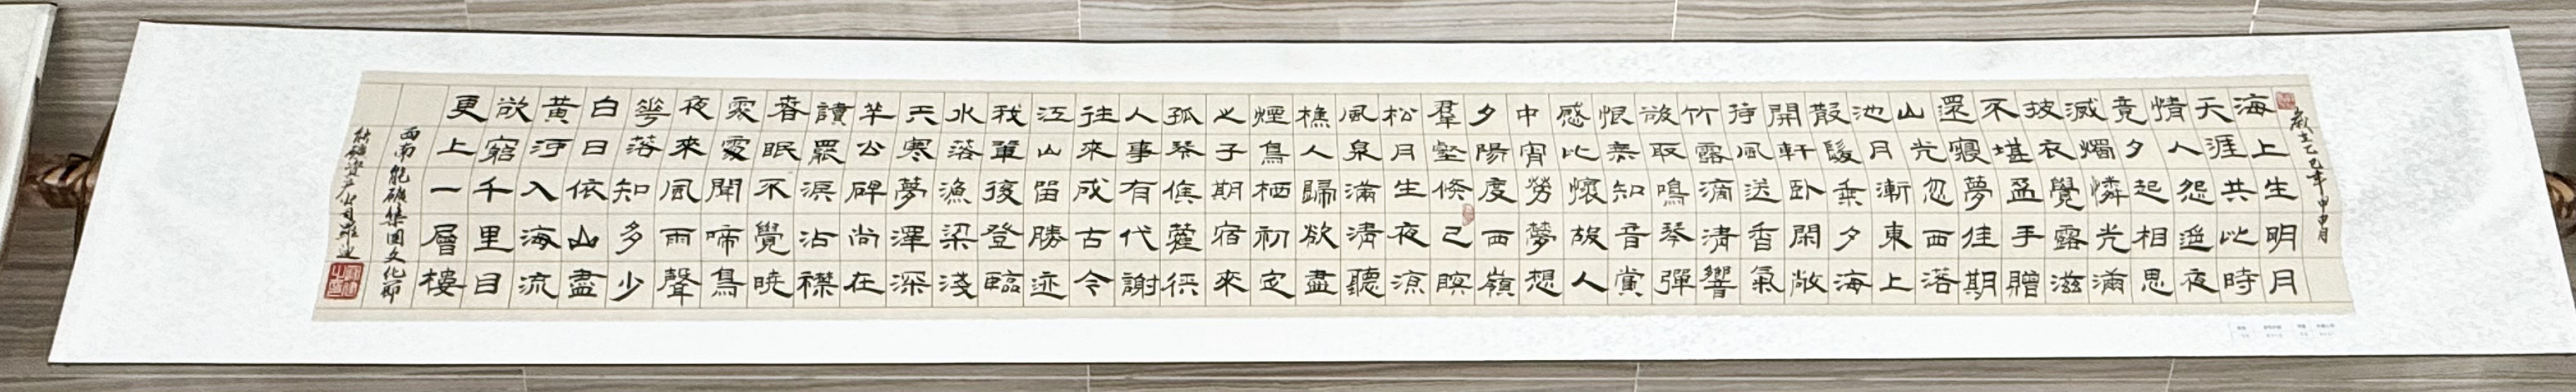 乙巳年甲申月
海上生明月
天涯共此時
情人怨遙夜
竟夕起相思
滅燭憐光滿
披衣覺露滋
不堪盈手贈
還寢夢佳期
山光忽西落
池月漸東上
散髮乘夕海
開軒臥閑敞
荷風送香氣
竹露滴清響
欲取鳴琴彈
恨無知音賞
感此懷故人
中宵勞夢想
夕陽度西嶺
羣壑倏已暝
松月生夜涼
風泉滿清聽
樵人歸欲盡
煙鳥栖初定
之子期宿來
孤琴候蘿徑
人事有代謝
往來成古今
江山留勝迹
我輩復登臨
水落漁梁淺
天寒夢澤深
羊公碑尚在
讀罷淚沾襟
春眠不覺曉
處處聞啼鳥
夜來風雨聲
花落知多少
白日依山盡
黃河入海流
欲窮千里目
更上一層樓
西南能礦集團文化節
能礦資產公司